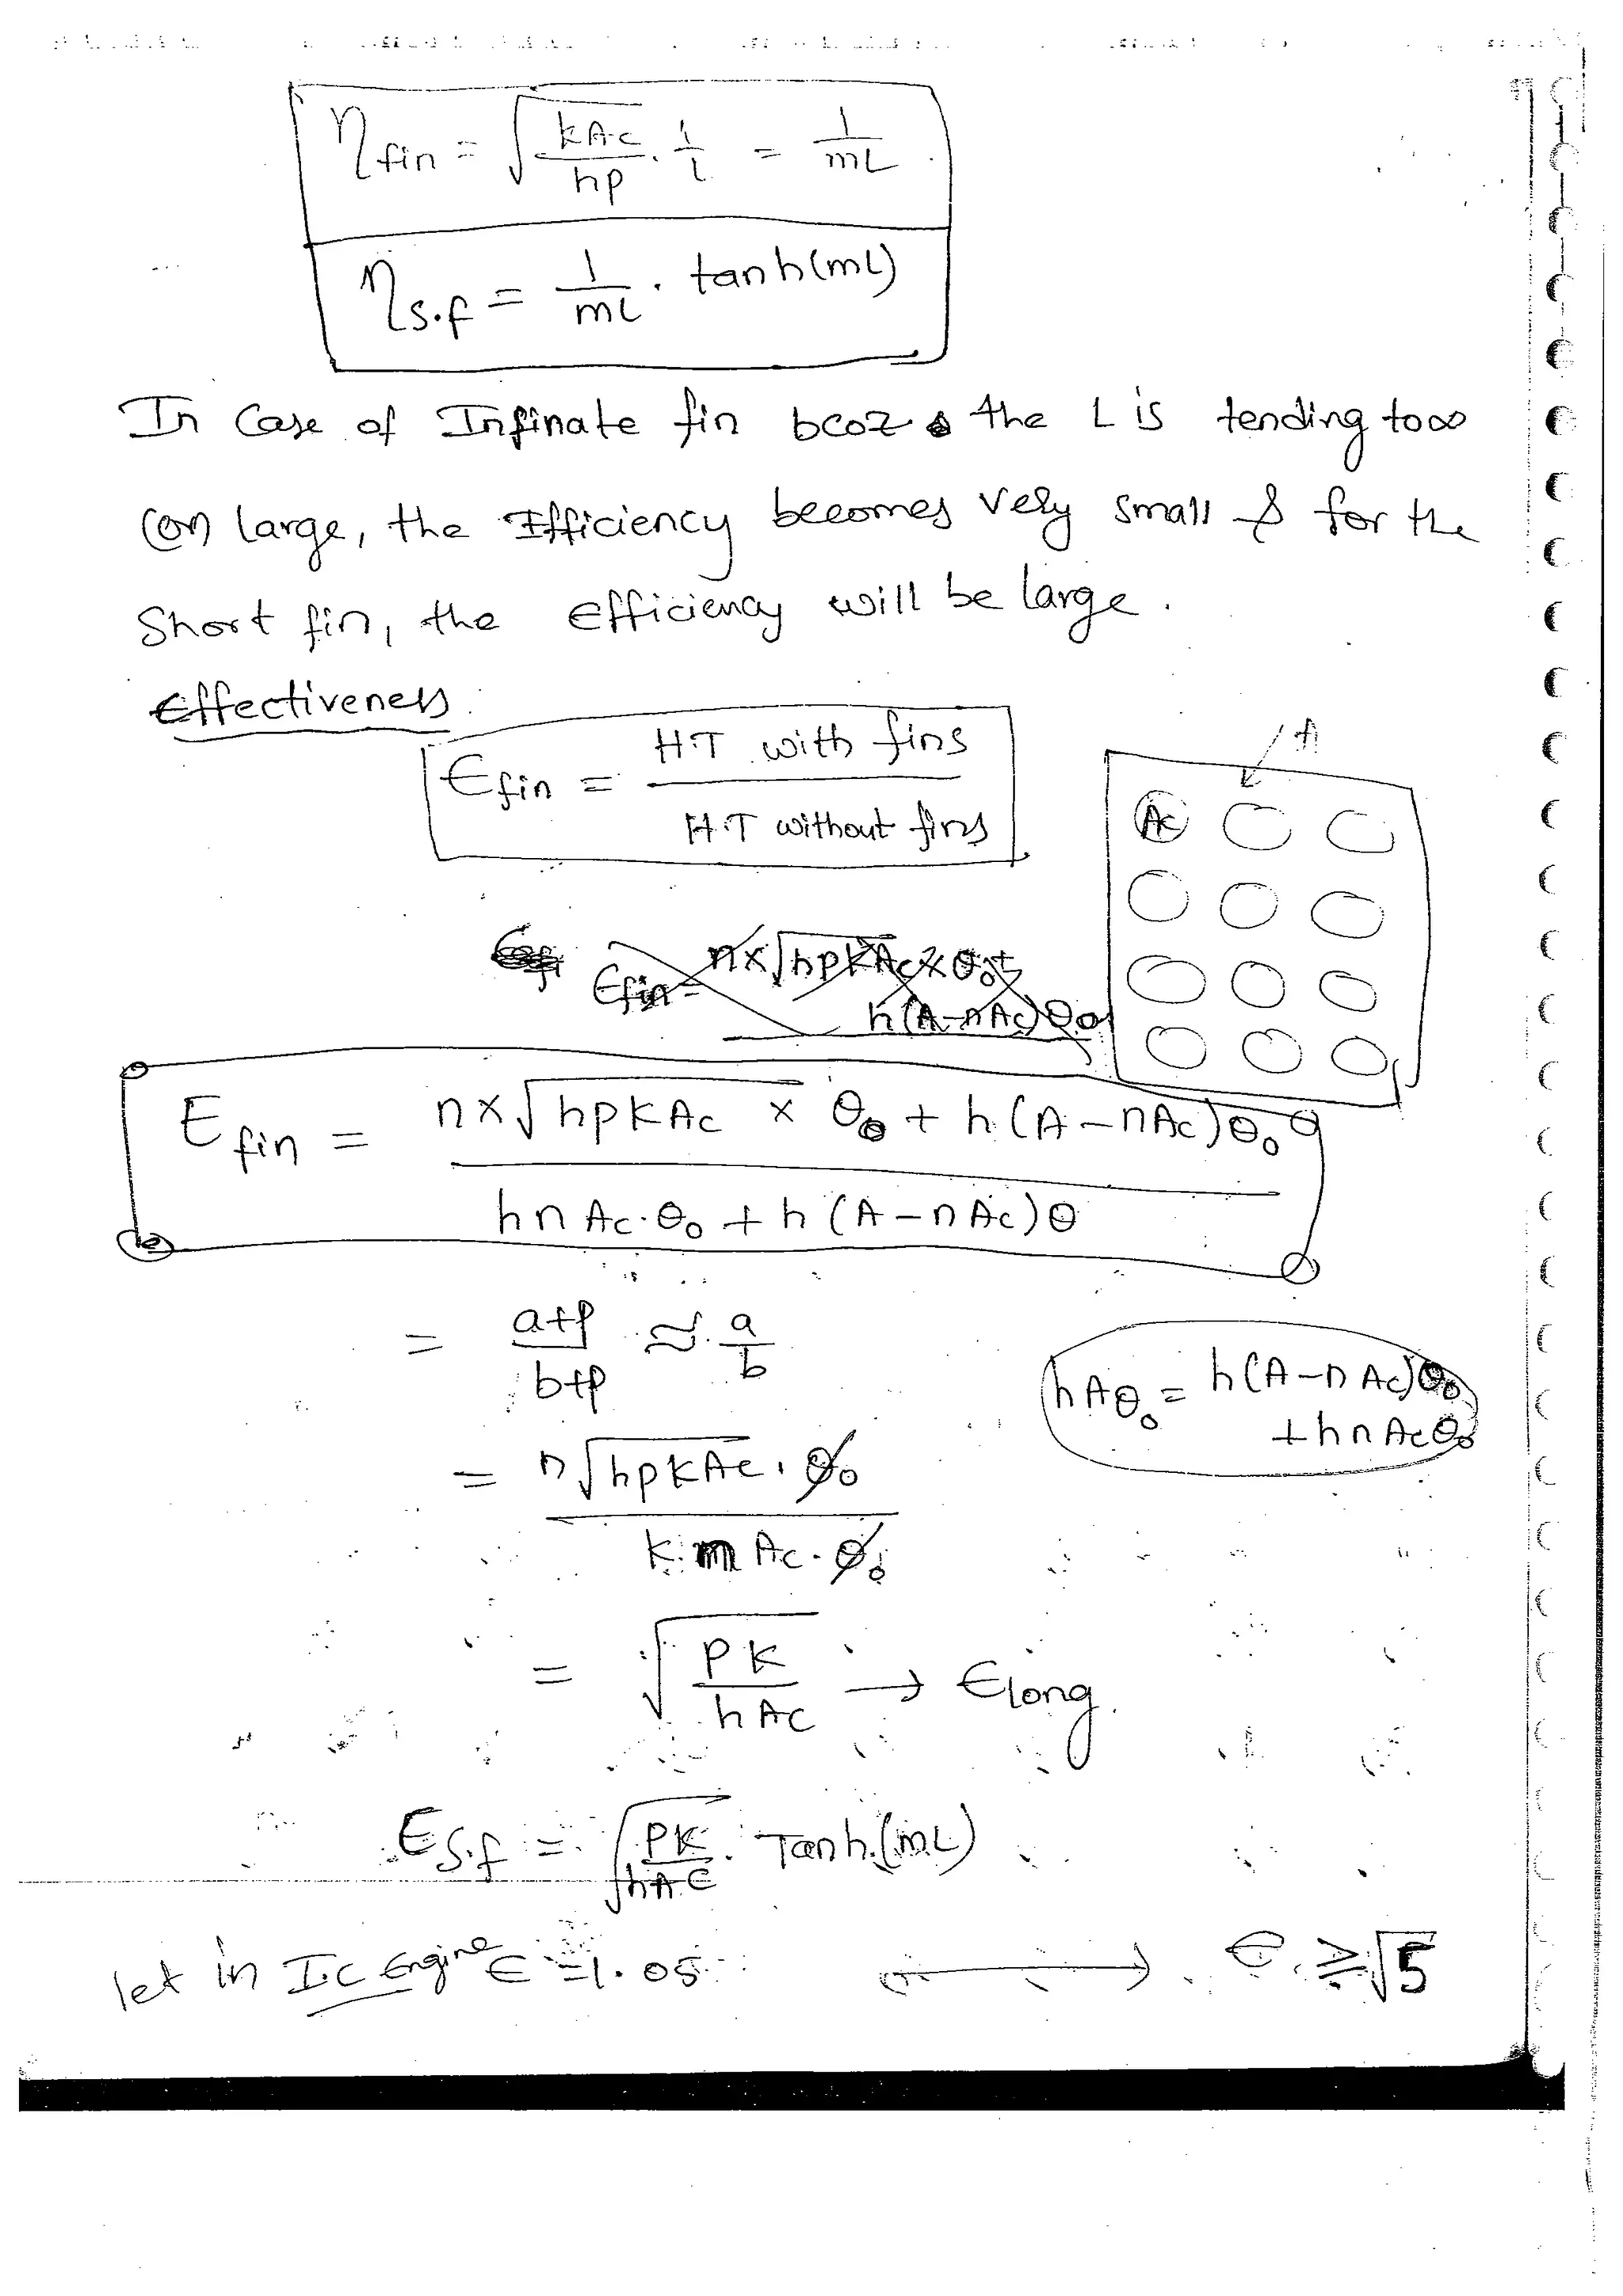 η fin = √(kAc/hp) . 1/L = 1/mL
η s.f = 1/mL . tanh(mL)
In Case of Infinate fin bcoz the L is tending to ∞
(or) Large, the Efficiency becomes very small & for the
Short fin, the efficiency will be large.
Effectiveness :
ϵ fin = H.T with fins / H.T without fins
A
Ac
ϵfin = n×√hpkAc × θo + h(A-nAc)θo
E fin = n×√hpkAc × θo + h(A-nAc)θo / hnAc.θo + h(A-nAc)θ
= a+p / b+p ≈ a/b
hAθo = h(A-nAc)θo + hnAcθo
= n√hpkAc . θo / k.n Ac.θo
= √(PK/hAc) → ϵlong.
ES.f = √(PK/hAc) . Tanh(mL)
let in I.C Engine ϵ = 1.05 → ϵ ≥ √5